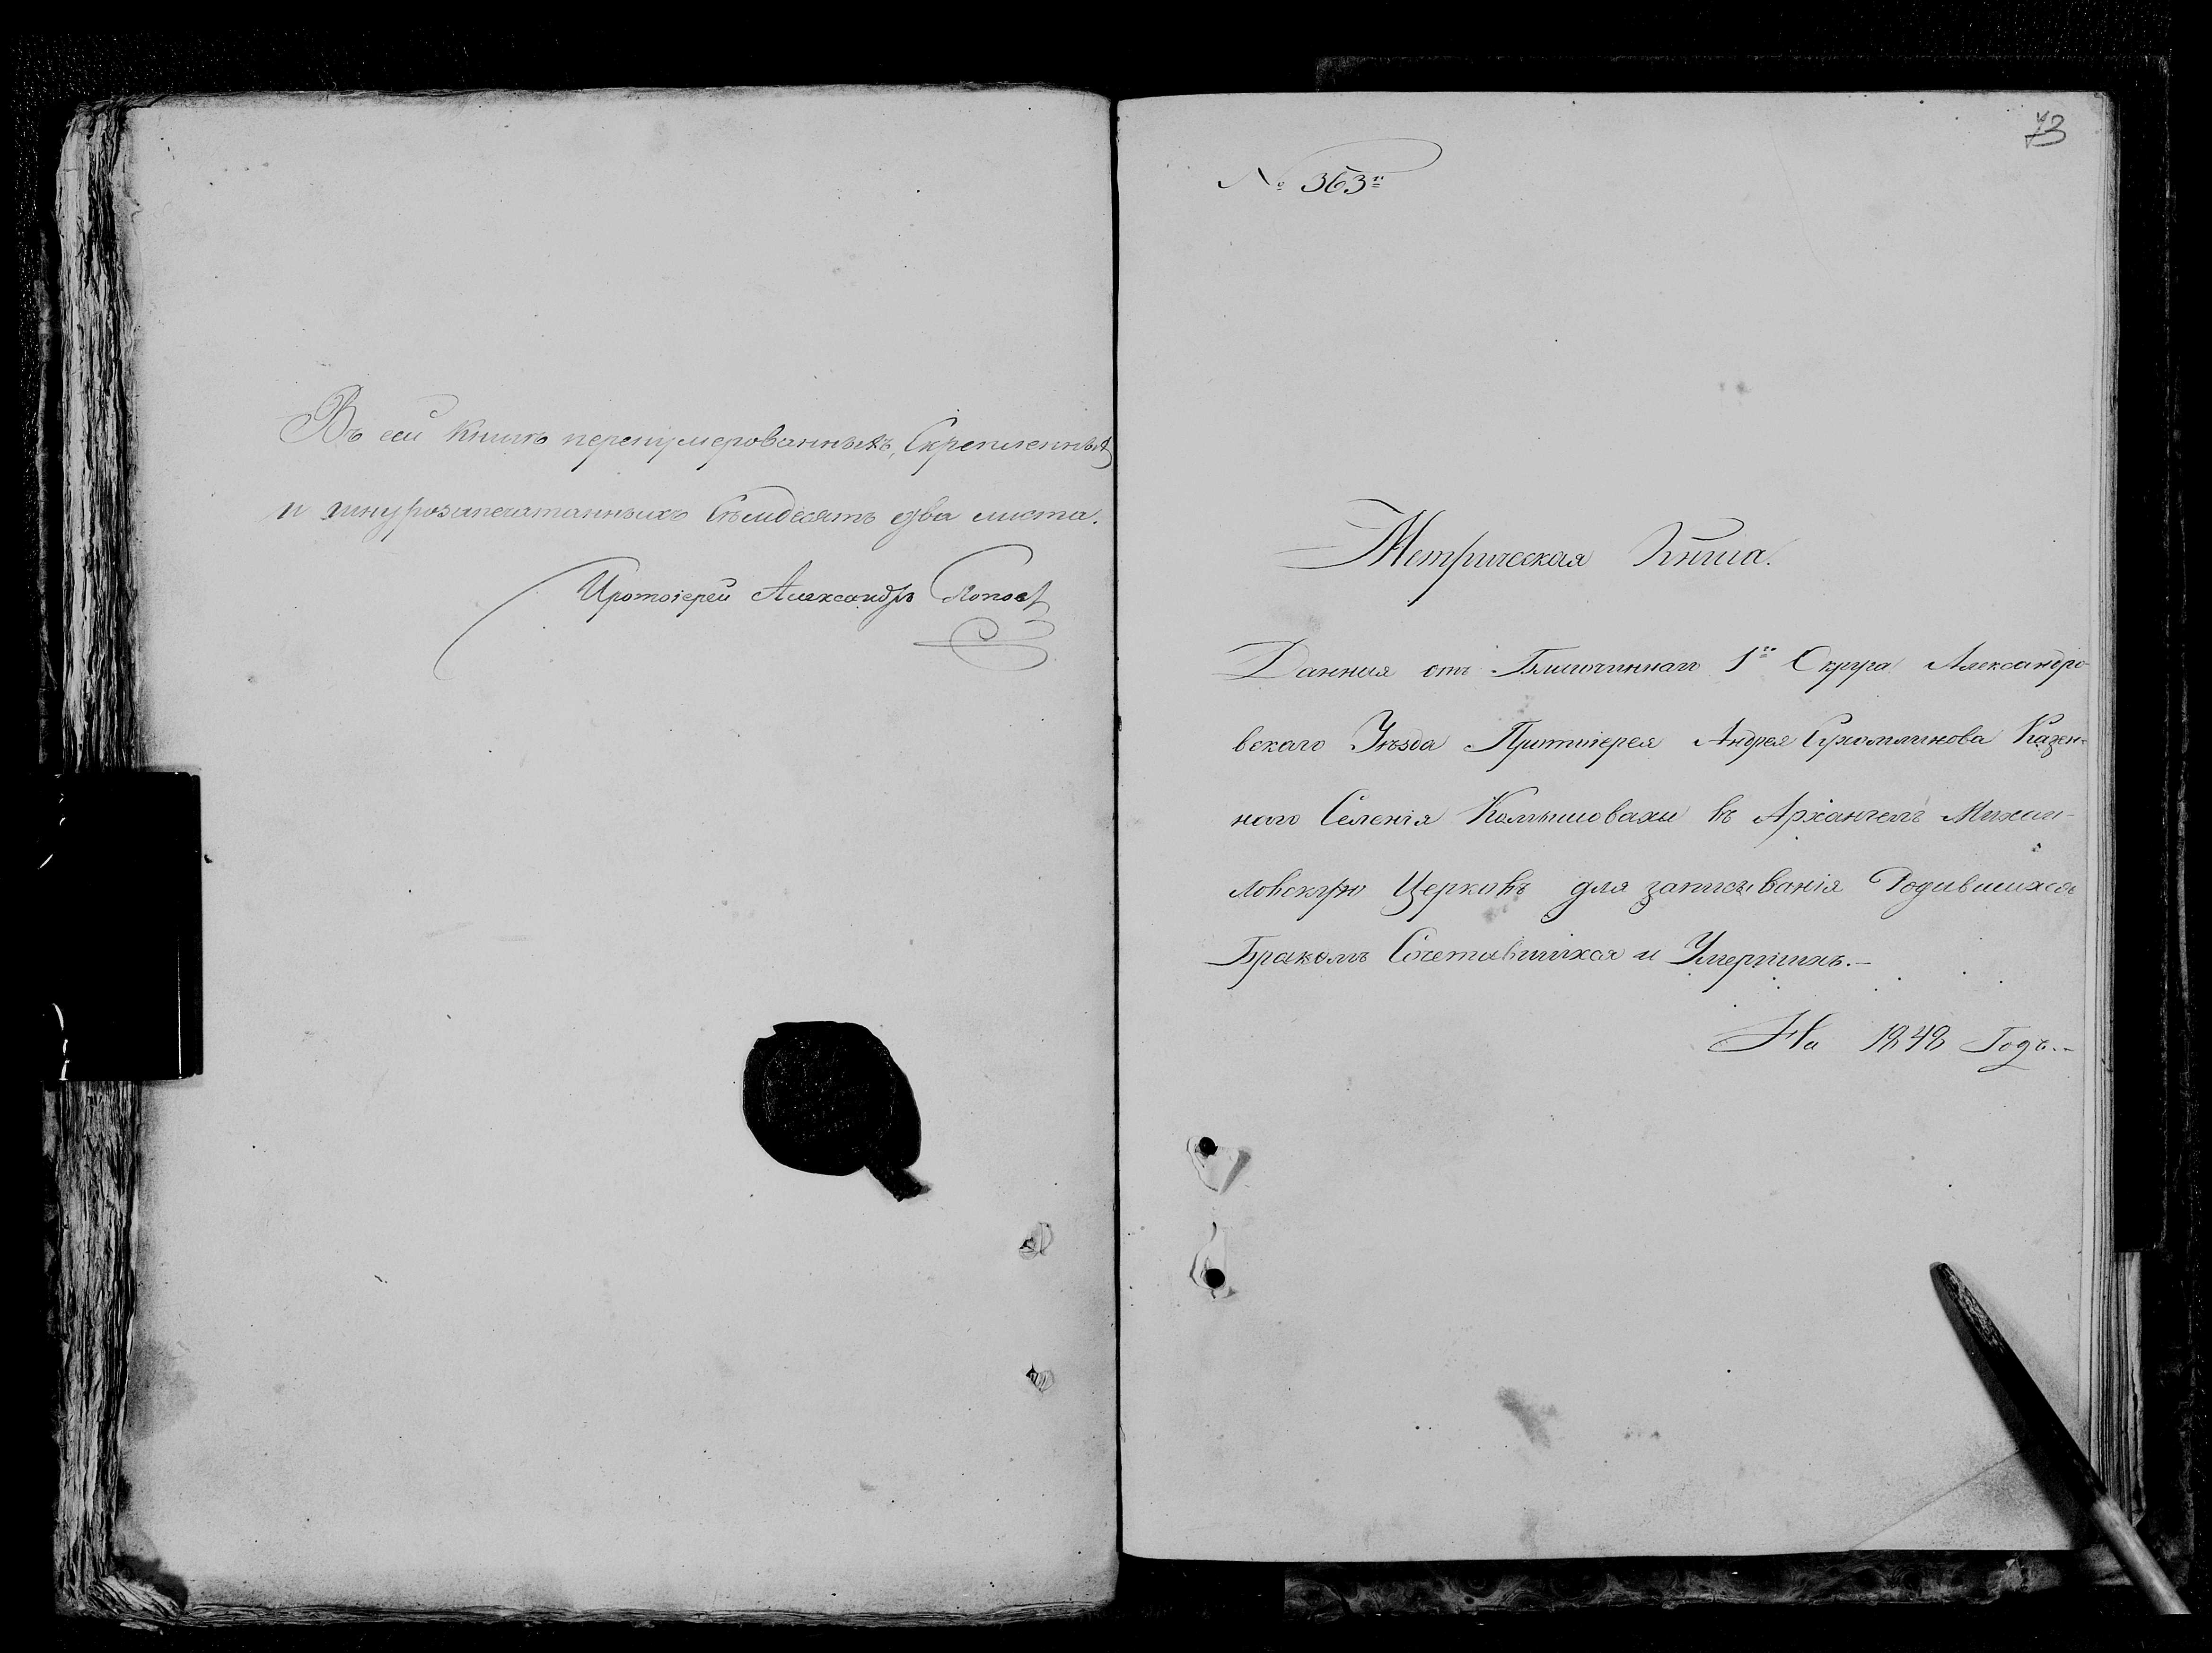 Въ сей Книгѣ перенумерованныхъ, Скрепленныхъ
и шнурозапечатанныхъ Семдесятъ два листа.
Протоіерей Александръ Попов
73
№ 363й
Метрическая Книга.
Данная отъ Благочиннаго 1го Округа Александро-
вскаго Уѣзда Протоіерея Андрея Сухомлинова Казен-
наго Селенія Камышовахи въ Архангелъ Михаи-
ловскую Церковъ для записыванія Родившихся
Бракомъ Сочетавшихся и Умершихъ.-
На 1848 Годъ.-